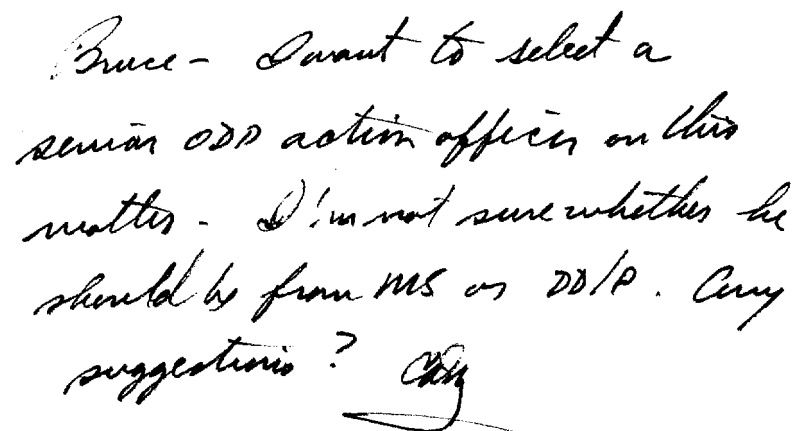 Bruce - I want to select a
senior ODP action officer on this
matter - I'm not sure whether he
should be from MS or DD/P. Any
suggestions?